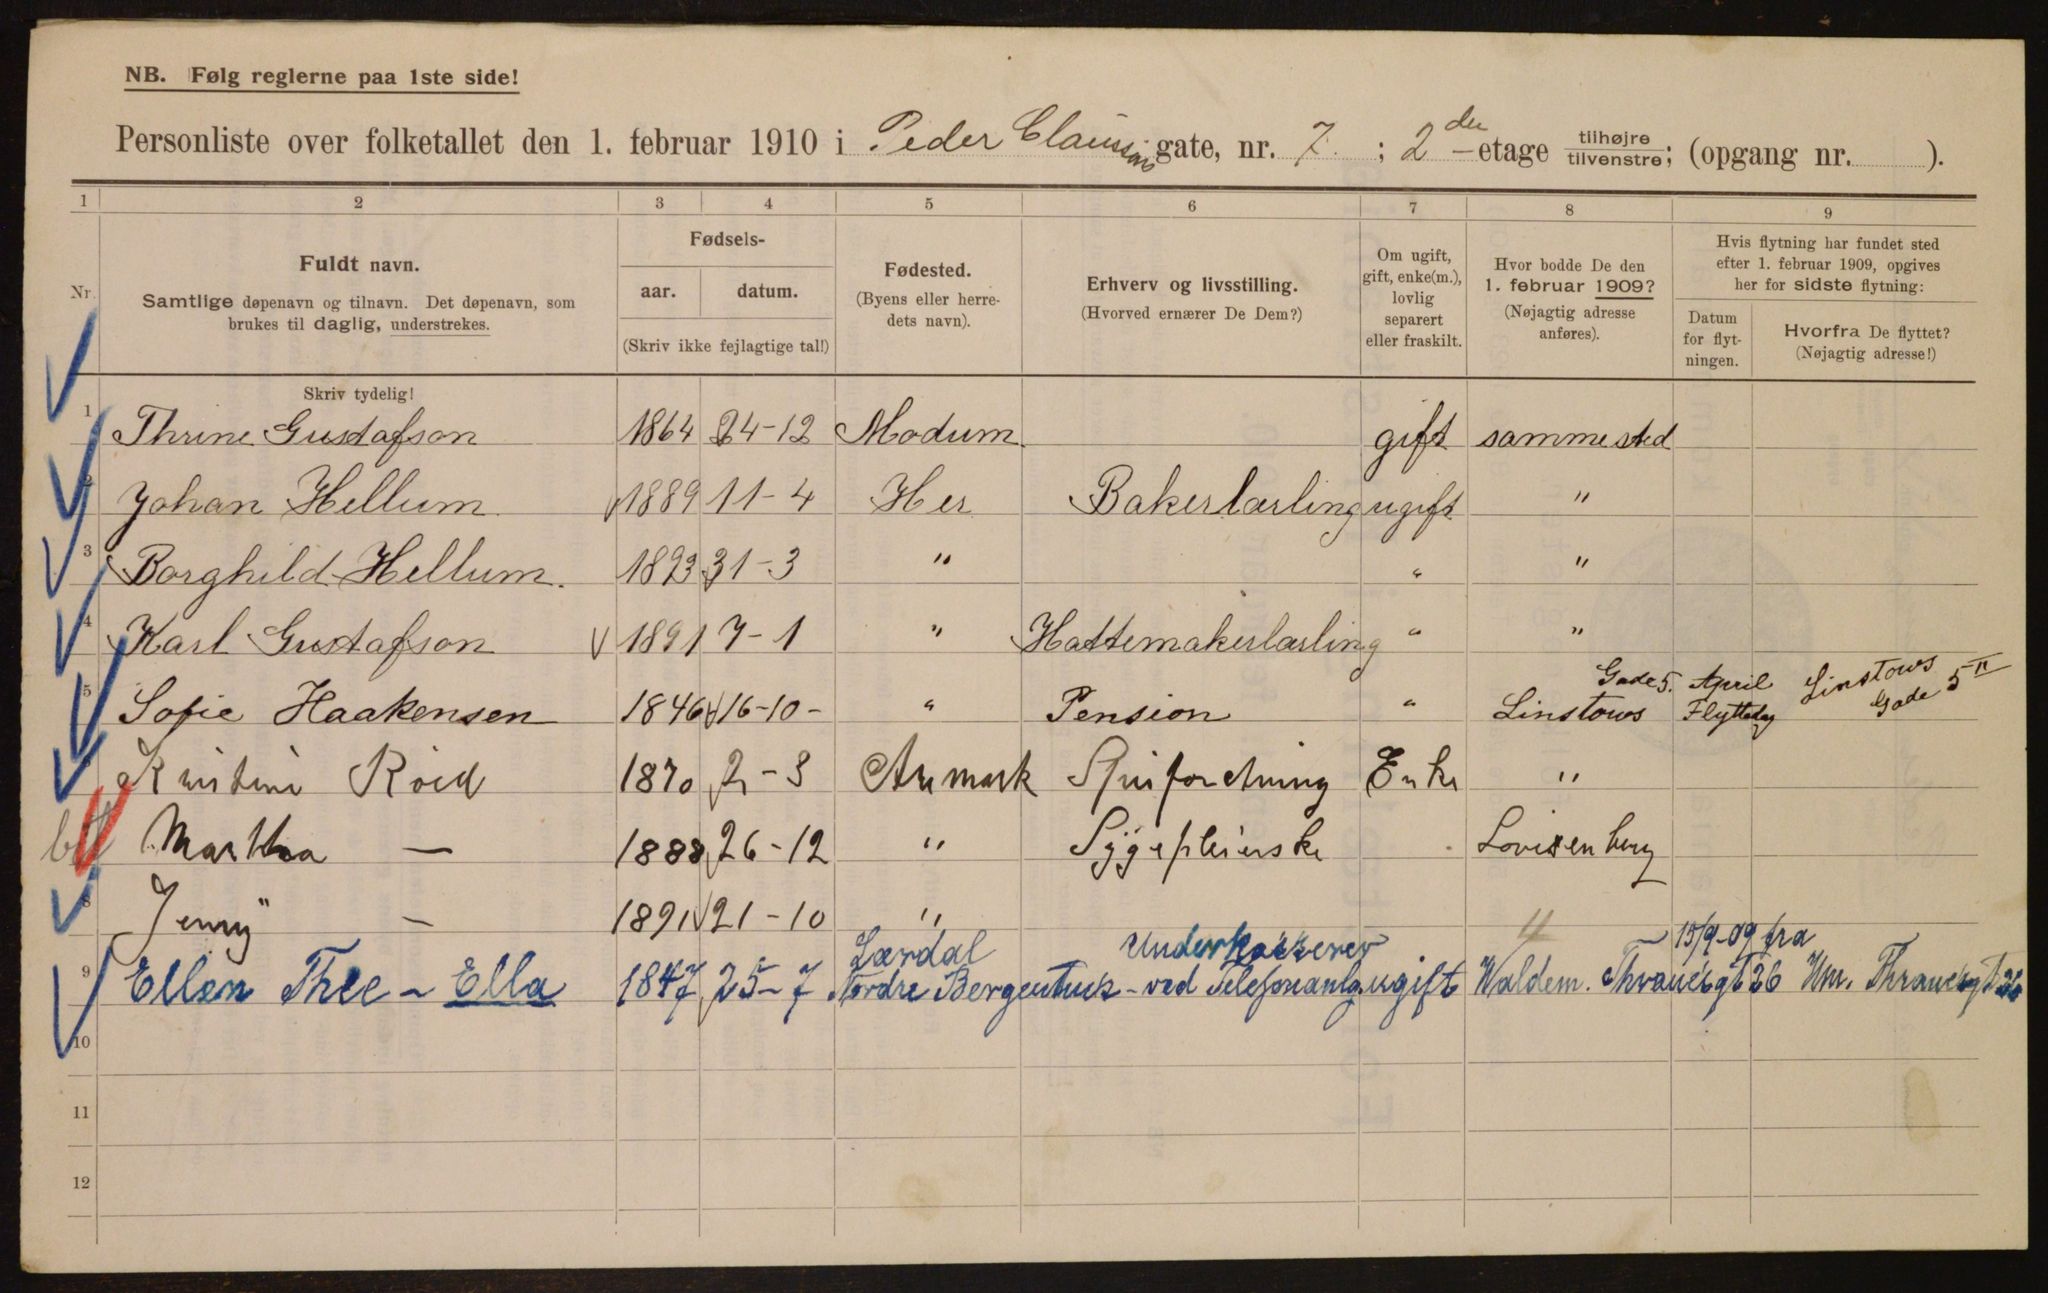 NB. Følg reglerne paa 1ste side!
Personliste over folketallet den 1. februar 1910 i Peder Claussøns gate, nr. 7 ; 2den etage tilhøjre tilvenstre; (opgang nr. ).
1 2 3 4 5 6 7 8 9
Nr.
Fuldt navn.
Samtlige døpenavn og tilnavn. Det døpenavn, som
brukes til daglig, understrekes.
Fødsels-
aar. datum.
(Skriv ikke fejlagtige tal!)
Fødested.
(Byens eller herre-
dets navn).
Erhverv og livsstilling.
(Hvorved ernærer De Dem?)
Om ugift,
gift, enke(m.),
lovlig
separert
eller fraskilt.
Hvor bodde De den
1. februar 1909?
(Nøjagtig adresse
anføres).
Hvis flytning har fundet sted
efter 1. februar 1909, opgives
her for sidste flytning:
Datum
for flyt-
ningen.
Hvorfra De flyttet?
(Nøjagtig adresse!)
Skriv tydelig!
1 Thrine Gustafson 1864 24-12 Modum gift samme sted
2 Johan Hellum 1889 11-4 Her Bakerlærling ugift "
3 Borghild Hellum. 1893 31-3 " " "
4 Karl Gustafson 1891 7-1 " Hattemakerlærling " "
Gade 5. April Linstows
5 Sofie Haakensen 1846 16-10- " Pension " Linstows Flyttedag Gade 5 II
Kristine Röed 1870 2-3 Aremark Enke "
Martha — 1888 26-12 " Sygepleierske Lovisenberg
8 Jenny — 1891 21-10 "
Lærdal Underkasserer 15/9-09 fra
9 Ellen Thee - Ella 1847 25-7 Nordre Bergenhus - ved Telefonanl. ugift Waldem. Thranesgt 26 Wm. Thranesgt 26
10
11
12